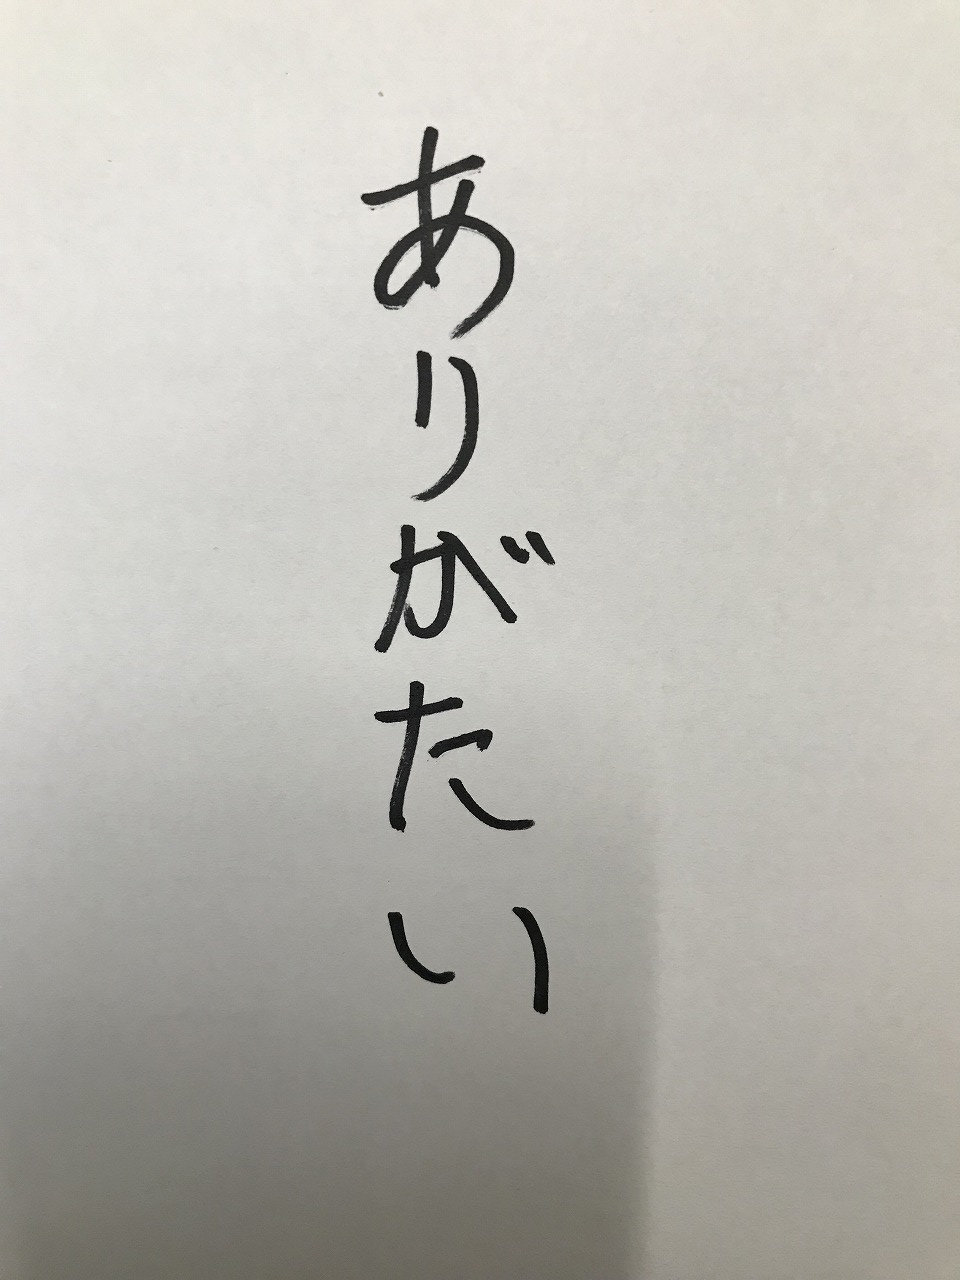 ありがたい